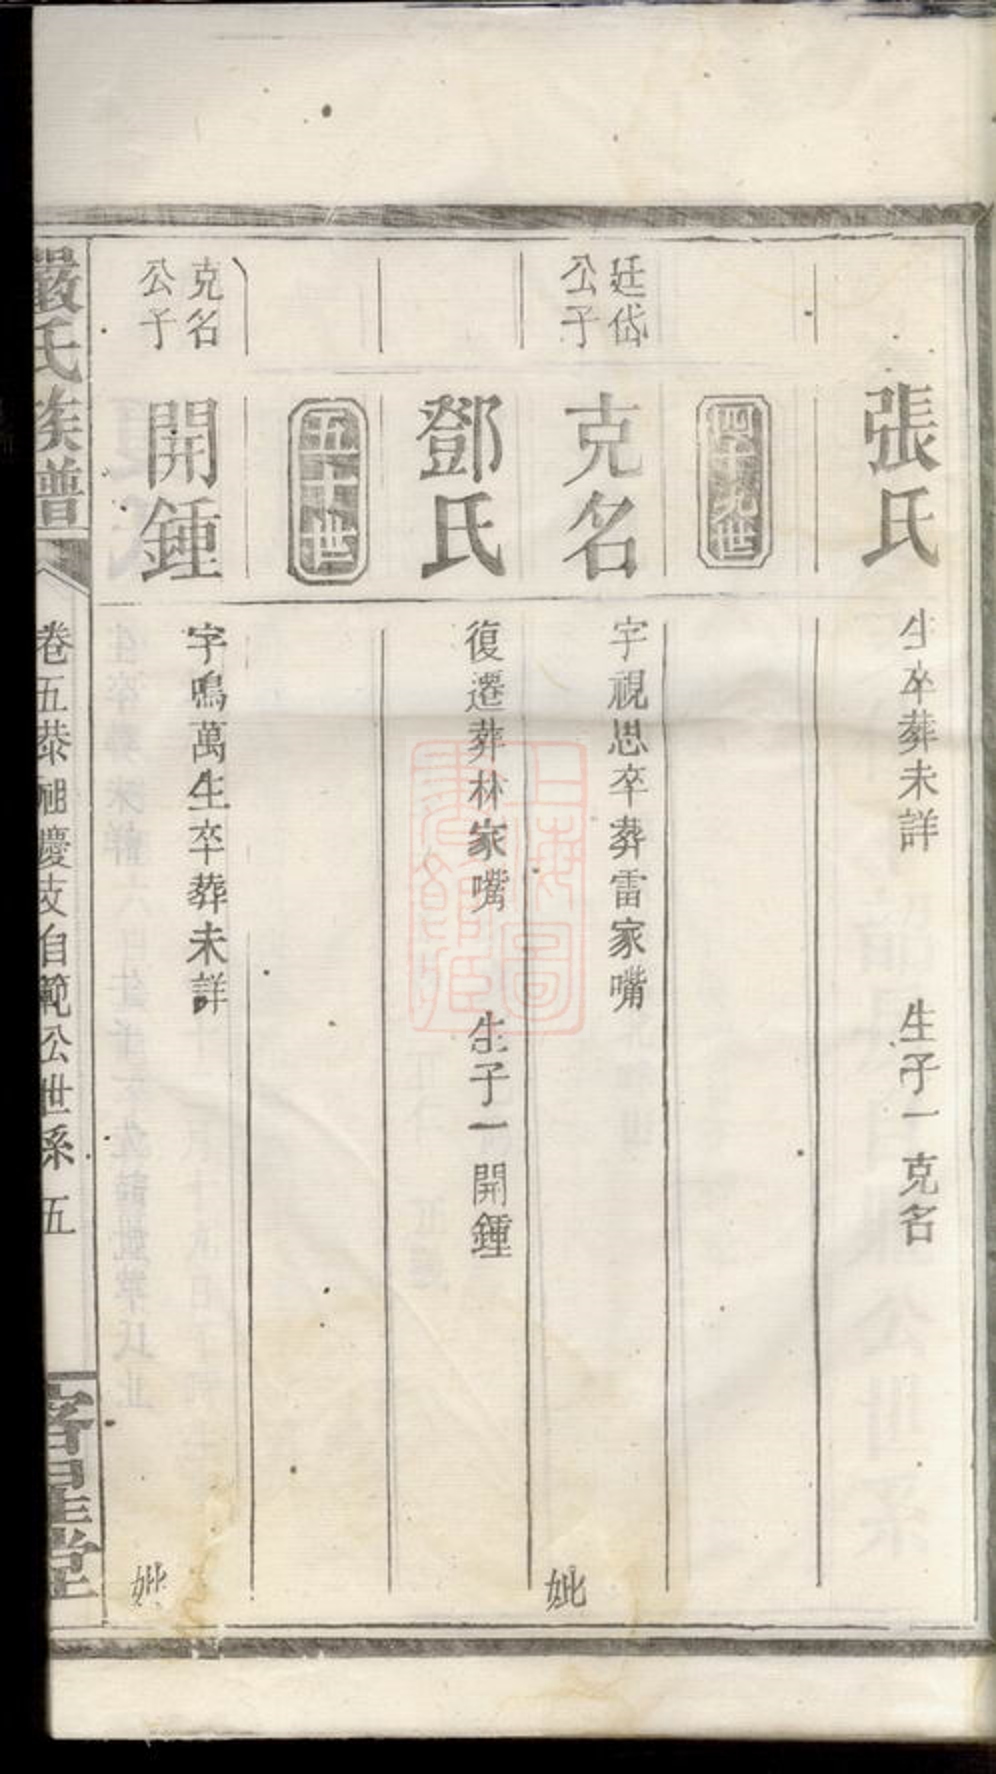 張氏
生卒葬未詳 生子一克名
四十九世
廷岱公子
克名
字視思卒葬雷家嘴 妣
鄧氏
復遷葬林家嘴 生子一開鍾
五十世
克名公子
開鍾
字鳴萬生卒葬未詳 妣
嚴氏族譜
卷五恭 慶支自範公世系 五
客星堂
上海圖書館藏